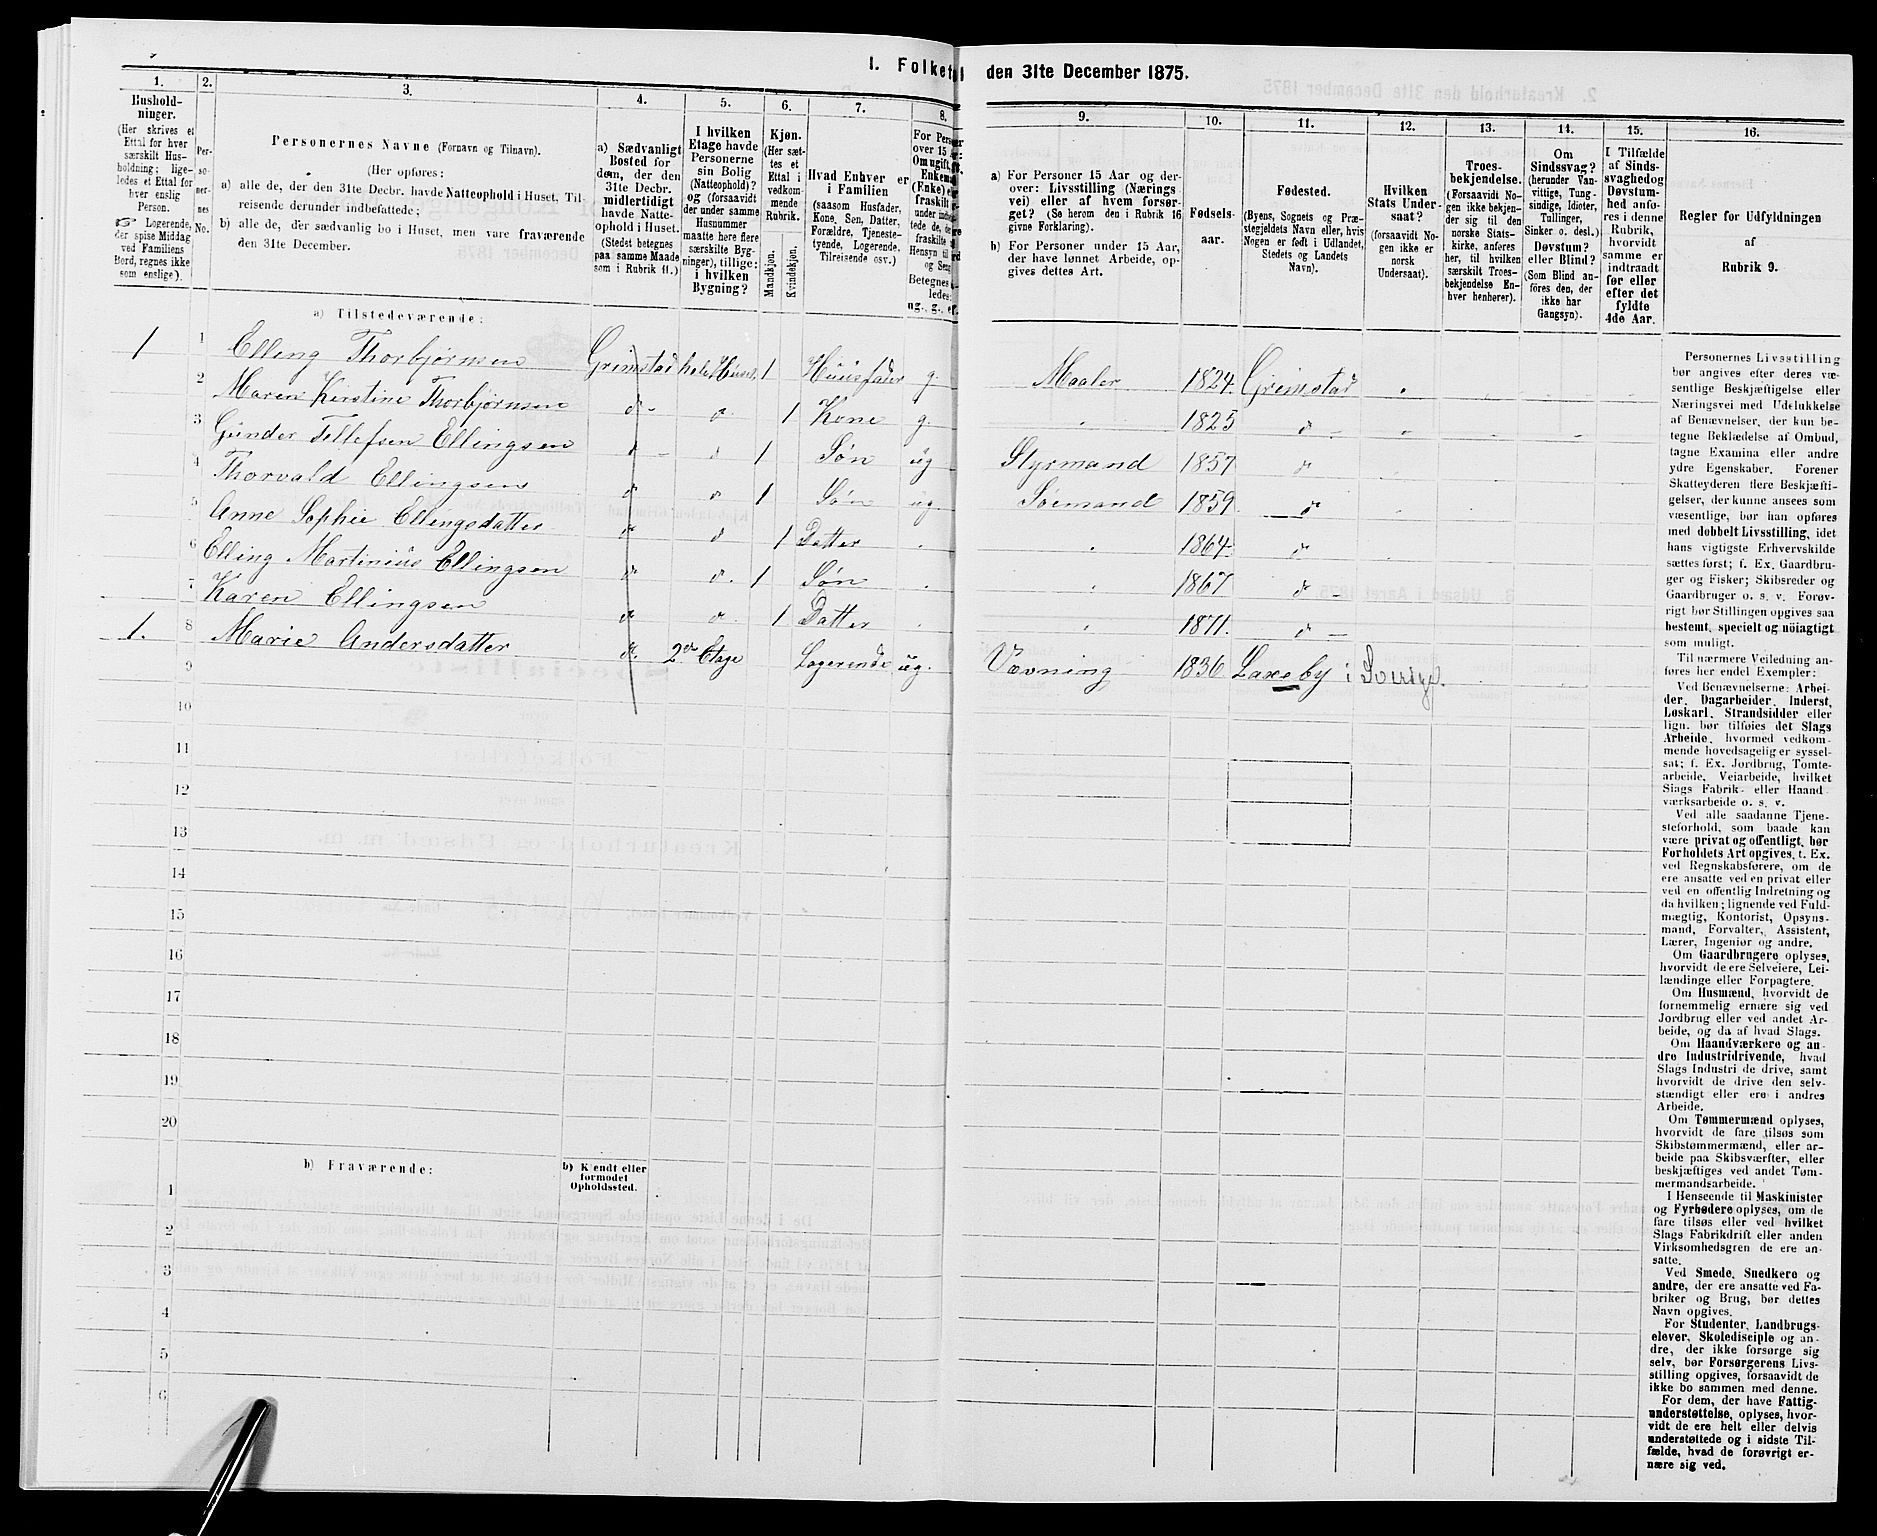 1. Folketæl den 31te December 1875.
1. 2. 3. 4. 5. 6. 7. 8. 9. 10. 11. 12. 13. 14. 15. 16.
Hushold-
ninger.
(Her skrives et
Ettal for hver
særskilt Hus-
holdning; lige-
ledes et Ettal for
hver enslig
Person.
☞ Logerende,
der spise Middag
ved Familiens
Bord, regnes ikke
som enslige).
Per-
so-
ner-
nes
No.
Personernes Navne (Fornavn og Tilnavn).
(Her opføres:
a) alle de, der den 31te Decbr. havde Natteophold i Huset, Til-
reisende derunder indbefattede;
b) alle de, der sædvanlig bo i Huset, men vare fraværende
den 31te December.
a) Sædvanligt
Bosted for
dem, der den
31te Decbr.
midlertidigt
havde Natte-
ophold i Huset.
(Stedet betegnes
paa samme Maade
som i Rubrik 11.)
I hvilken
Etage havde
Personerne
sin Bolig
(Natteophold)?
og (forsaavidt
der under samme
Husnummer
maatte høre flere
særskilte Byg-
ninger), tillige:
i hvilken
Bygning?
Kjøn.
(Her sæt-
tes et
Ettal i
vedkom-
mende
Rubrik.
Mandkjøn.
Kvindekjøn.
Hvad Enhver er
i Familien
(saasom Husfader,
Kone, Søn, Datter,
Forældre, Tjeneste-
tyende, Logerende,
Tilreisende osv.)
For Personer
over 15
Om ugift,
Enkemand
(Enke) el
fraskilt
under indbe
tede de,
fraskilte
Hensyn til
og Seng
Betegnes
ledes:
ug., g., e
a) For Personer 15 Aar og der-
over: Livsstilling (Nærings
vei) eller af hvem forsør-
get? (Se herom den i Rubrik 16
givne Forklaring).
b) For Personer under 15 Aar,
der have lønnet Arbeide, op-
gives dettes Art.
Fødsels-
aar.
Fødested.
(Byens, Sognets og Præ-
stegjeldets Navn eller, hvis
Nogen er født i Udlandet,
Stedets og Landets
Navn).
Hvilken
Stats Under-
saat?
(forsaavidt No-
gen ikke er
norsk
Undersaat).
Troes-
bekjendelse.
(Forsaavidt No-
gen ikke bekjen-
der sig til den
norske Stats-
kirke, anføres
her, til hvilken
særskilt Troes-
bekjendelse En-
hver henhører).
Om
Sindssvag?
(herunder Van-
vittige, Tung-
sindige, Idioter,
Tullinger,
Sinker o. desl.)
Døvstum?
eller Blind?
(Som Blind an-
føres den, der
ikke har
Gangsyn).
I Tilfælde
af Sinds-
svaghed og
Døvstum-
hed anfø-
res i denne
Rubrik,
hvorvidt
samme er
indtraadt
før eller
efter det
fyldte
4de Aar.
Regler for Udfyldningen
af
Rubrik 9.
a) Tilstedeværende:
1 1 Elling Thorbjørnsen Grimstad hele Huset 1 Huusfader g. Maaler 1824 Grimstad
2 Maren Kirstine Thorbjørnsen d- d. 1 Kone g. 1825 d-
3 Gunder Tellefsen Ellingsen d- d 1 Søn ug Styrmand 1857 d
4 Thorvald Ellingsen d d 1 Søn ug Søemand 1859 d
5 Anne Sophie Ellingsdatter d d 1 Datter 1864 d
6 Elling Martinius Ellingsen d d. 1 Søn 1867 d-
7 Karen Ellingsen d d. 1 Datter 1871. d-
1. 8 Marie Andersdatter d. 2den Etage Logerende ug. Vævning 1836 Laxeby i Sverige.
9
10
11
12
13
14
15
16
17
18
19
20
b) Fraværende:
b) Kjendt eller
formodet
Opholdssted.
1
2
3
4
5
6
Personernes Livsstilling
bør angives efter deres væ-
sentlige Beskjæftigelse eller
Næringsvei med Udelukkelse
af Benævnelser, der kun be-
tegne Beklædelse af Ombud,
tagne Examina eller andre
ydre Egenskaber. Forener
Skatteyderen flere Beskjæfti-
gelser, der kunne ansees som
væsentlige, bør han opføres
med dobbelt Livsstilling, idet
hans vigtigste Erhvervskilde
sættes først; f. Ex. Gaardbru-
ger og Fisker; Skibsreder og
Gaardbruger o. s. v. Forøv-
rigt bør Stillingen opgives saa
bestemt, specielt og nøiagtigt
som muligt.
Til nærmere Veiledning an-
føres her endel Exempler:
Ved Benævnelserne: Arbei-
der, Dagarbeider, Inderst,
Løskarl, Strandsidder eller
lign. bør tilføies det Slags
Arbeide, hvormed vedkom-
mende hovedsagelig er syssel-
sat; f. Ex. Jordbrug, Tomte-
arbeide, Veiarbeide, hvilket
Slags Fabrik- eller Haand
værksarbeide o. s. v.
Ved alle saadanne Tjene-
steforhold, som baade kan
være privat og offentligt, bør
Forholdets Art opgives, t. Ex.
ved Regnskabsførere, om de
ere ansatte ved en privat eller
ved en offentlig Indretning og
da hvilken; lignende ved Fuld-
mægtig, Kontorist, Opsyns-
mand, Forvalter, Assistent,
Lærer, Ingeniør og andre.
Om Gaardbrugere oplyses,
hvorvidt de ere Selveiere, Lei-
lændinge eller Forpagtere.
Om Husmænd, hvorvidt de
fornemmelig ernære sig ved
Jordbrug eller ved andet Ar-
beide, og da af hvad Slags.
Om Haandværkere og an-
dre Industridrivende, hvad
Slags Industri de drive, samt
hvorvidt de drive den selv-
stændigt eller ere i andres
Arbeide.
Om Tømmermænd oplyses,
hvorvidt de fare tilsøs som
Skibstømmermænd, eller ar-
beide paa Skibsværfter, eller
beskjæftiges ved andet Tøm-
mermandsarbeide.
I Henseende til Maskinister
og Fyrbødere oplyses, om de
fare tilsøs eller ved hvilket
Slags Fabrikdrift eller anden
Virksomhedsgren de ere an-
satte.
Ved Smede, Snedkere og
andre, der ere ansatte ved Fa-
briker og Brug, bør dettes
Navn opgives.
For Studenter, Landbrugs-
elever, Skoledisciple og an-
dre, der ikke forsørge sig
selv, bør Forsørgerens Livs-
stilling opgives, forsaavidt de
ikke bo sammen med denne.
For dem, der have Fattig-
understøttelse, oplyses, hvor-
vidt de ere helt eller delvis
understøttede og i sidste Til-
fælde, hvad de forøvrigt er-
nære sig ved.